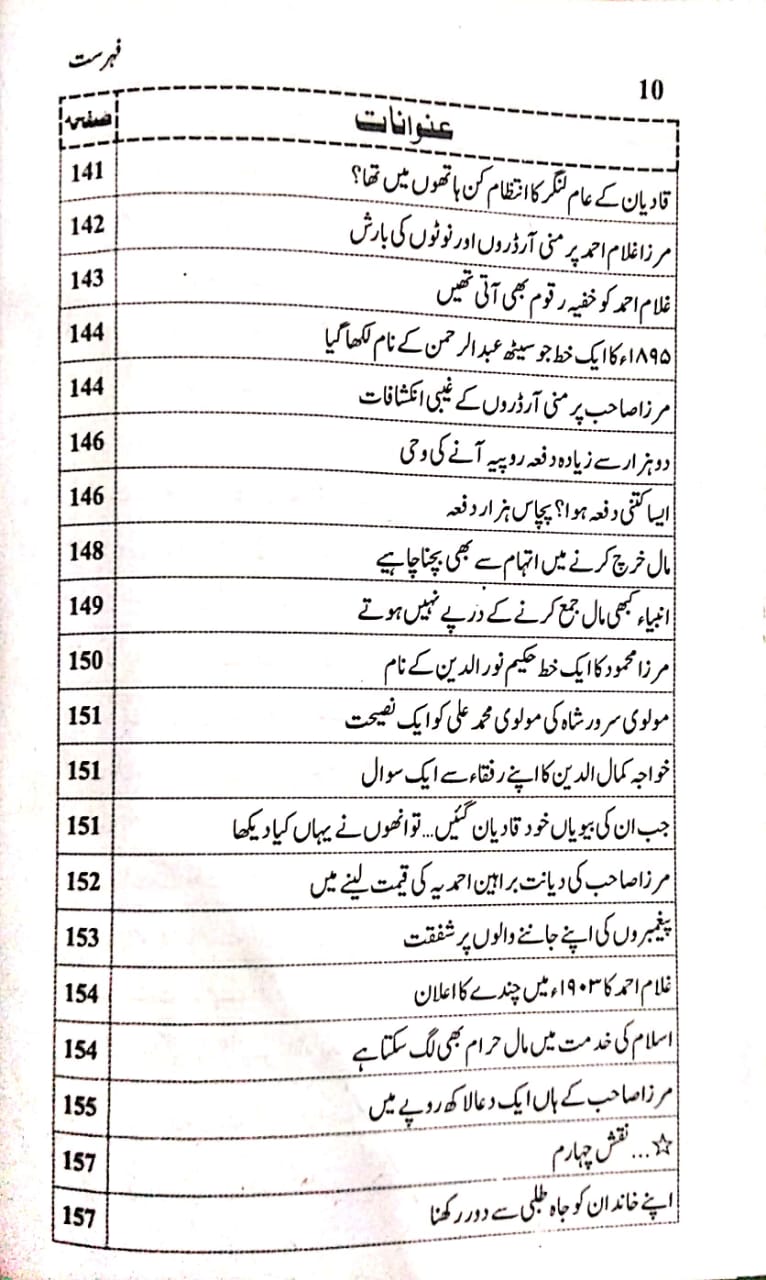 10 فہرست
عنوانات صفحہ
قادیان کے عام لنگر کا انتظام کن ہاتھوں میں تھا؟ 141
مرزا غلام احمد پر منی آرڈروں اور نوٹوں کی بارش 142
غلام احمد کو خفیہ رقوم بھی آتی تھیں 143
۱۸۹۵ء کا ایک خط جو سیٹھ عبدالرحمن کے نام لکھا گیا 144
مرزا صاحب پر منی آرڈروں کے غیبی انکشافات 144
دو ہزار سے زیادہ دفعہ روپیہ آنے کی وحی 146
ایسا کتنی دفعہ ہوا؟ پچاس ہزار دفعہ 146
مال خرچ کرنے میں اتہام سے بھی بچنا چاہیے 148
انبیاء کبھی مال جمع کرنے کے درپے نہیں ہوتے 149
مرزا محمود کا ایک خط حکیم نور الدین کے نام 150
مولوی سرور شاہ کی مولوی محمد علی کو ایک نصیحت 151
خواجہ کمال الدین کا اپنے رفقاء سے ایک سوال 151
جب ان کی بیویاں خود قادیان گئیں... تو انھوں نے یہاں کیا دیکھا 151
مرزا صاحب کی دیانت براہین احمدیہ کی قیمت لینے میں 152
پیغمبروں کی اپنے جاننے والوں پر شفقت 153
غلام احمد کا ۱۹۰۳ء میں چندے کا اعلان 154
اسلام کی خدمت میں مال حرام بھی لگ سکتا ہے 154
مرزا صاحب کے ہاں ایک دعا لاکھ روپے میں 155
☆... نقش چہارم 157
اپنے خاندان کو جاہ طلبی سے دور رکھنا 157